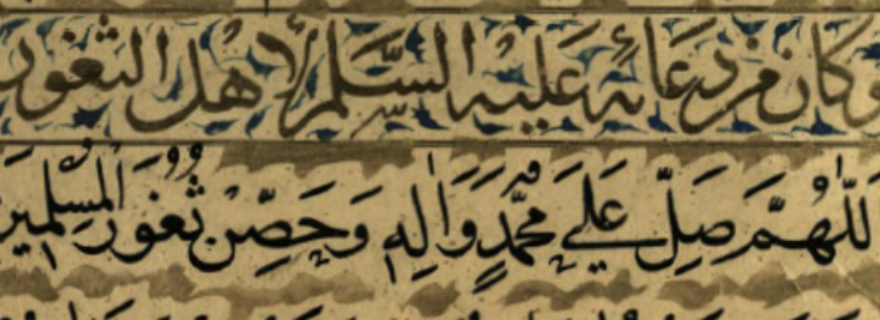 وكان من دعائه عليه السلم لاهل الثغور
اللهم صل على محمد واله وحصن ثغور المسلمين